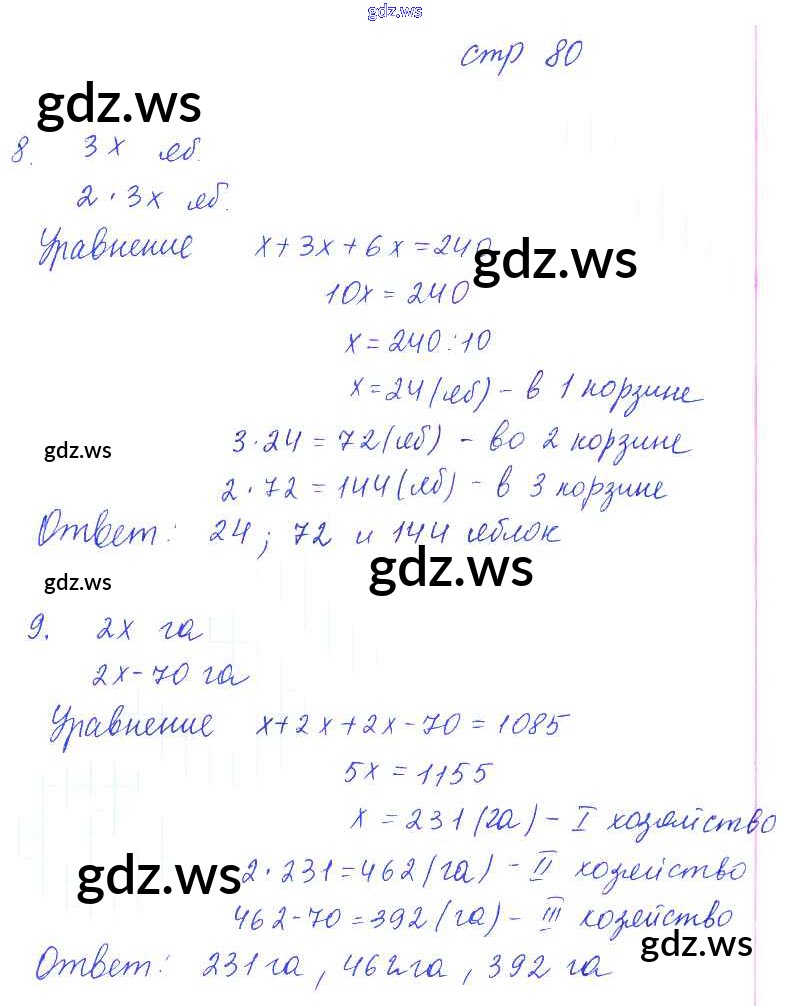 gdz.ws
стр 80
gdz.ws
8. 3x яб.
2·3x яб.
Уравнение x+3x+6x=240
gdz.ws
10x=240
x=240:10
x=24(яб) - в 1 корзине
gdz.ws 3·24=72(яб) - во 2 корзине
2·72=144(яб) - в 3 корзине
Ответ: 24; 72 и 144 яблок
gdz.ws
gdz.ws
9. 2x га
2x-70 га
Уравнение x+2x+2x-70=1085
5x=1155
x=231(га) - I хозяйство
gdz.ws 2·231=462(га) - II хозяйство
462-70=392(га) - III хозяйство
gdz.ws
Ответ: 231 га, 462 га, 392 га